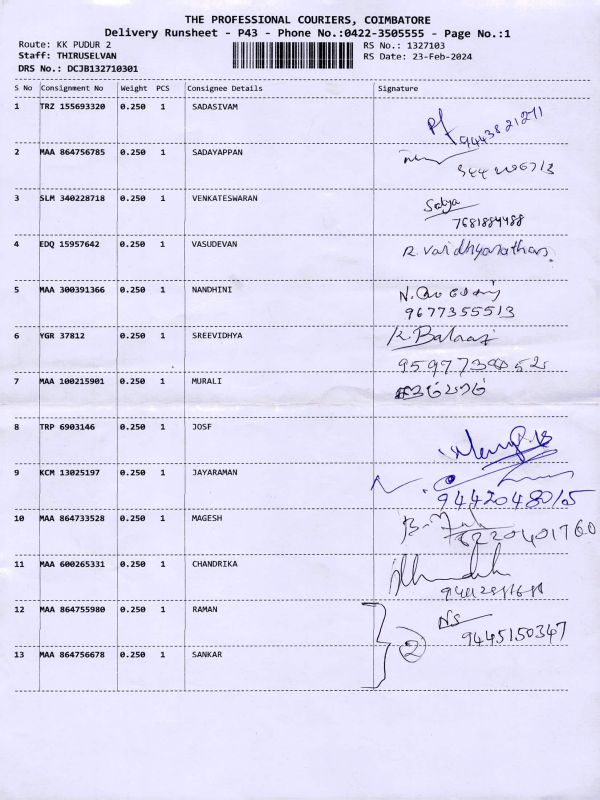 THE PROFESSIONAL COURIERS, COIMBATORE
Delivery Runsheet - P43 - Phone No.:0422-3505555 - Page No.:1
Route: KK PUDUR 2 RS No.: 1327103
Staff: THIRUSELVAN RS Date: 23-Feb-2024
DRS No.: DCJB132710301
S No Consignment No Weight PCS Consignee Details Signature
1 TRZ 155693320 0.250 1 SADASIVAM
9443821271
2 MAA 864756785 0.250 1 SADAYAPPAN
3 SLM 340228718 0.250 1 VENKATESWARAN Sabja
7681884488
4 EDQ 15957642 0.250 1 VASUDEVAN R. Vaidhyanathan.
5 MAA 300391366 0.250 1 NANDHINI
9677355513
6 YGR 37812 0.250 1 SREEVIDHYA K. Balaaj
7 MAA 100215901 0.250 1 MURALI
8 TRP 6903146 0.250 1 JOSF
9 KCM 13025197 0.250 1 JAYARAMAN
9442048015
10 MAA 864733528 0.250 1 MAGESH
11 MAA 600265331 0.250 1 CHANDRIKA
12 MAA 864755980 0.250 1 RAMAN NS
9445150347
2
13 MAA 864756678 0.250 1 SANKAR